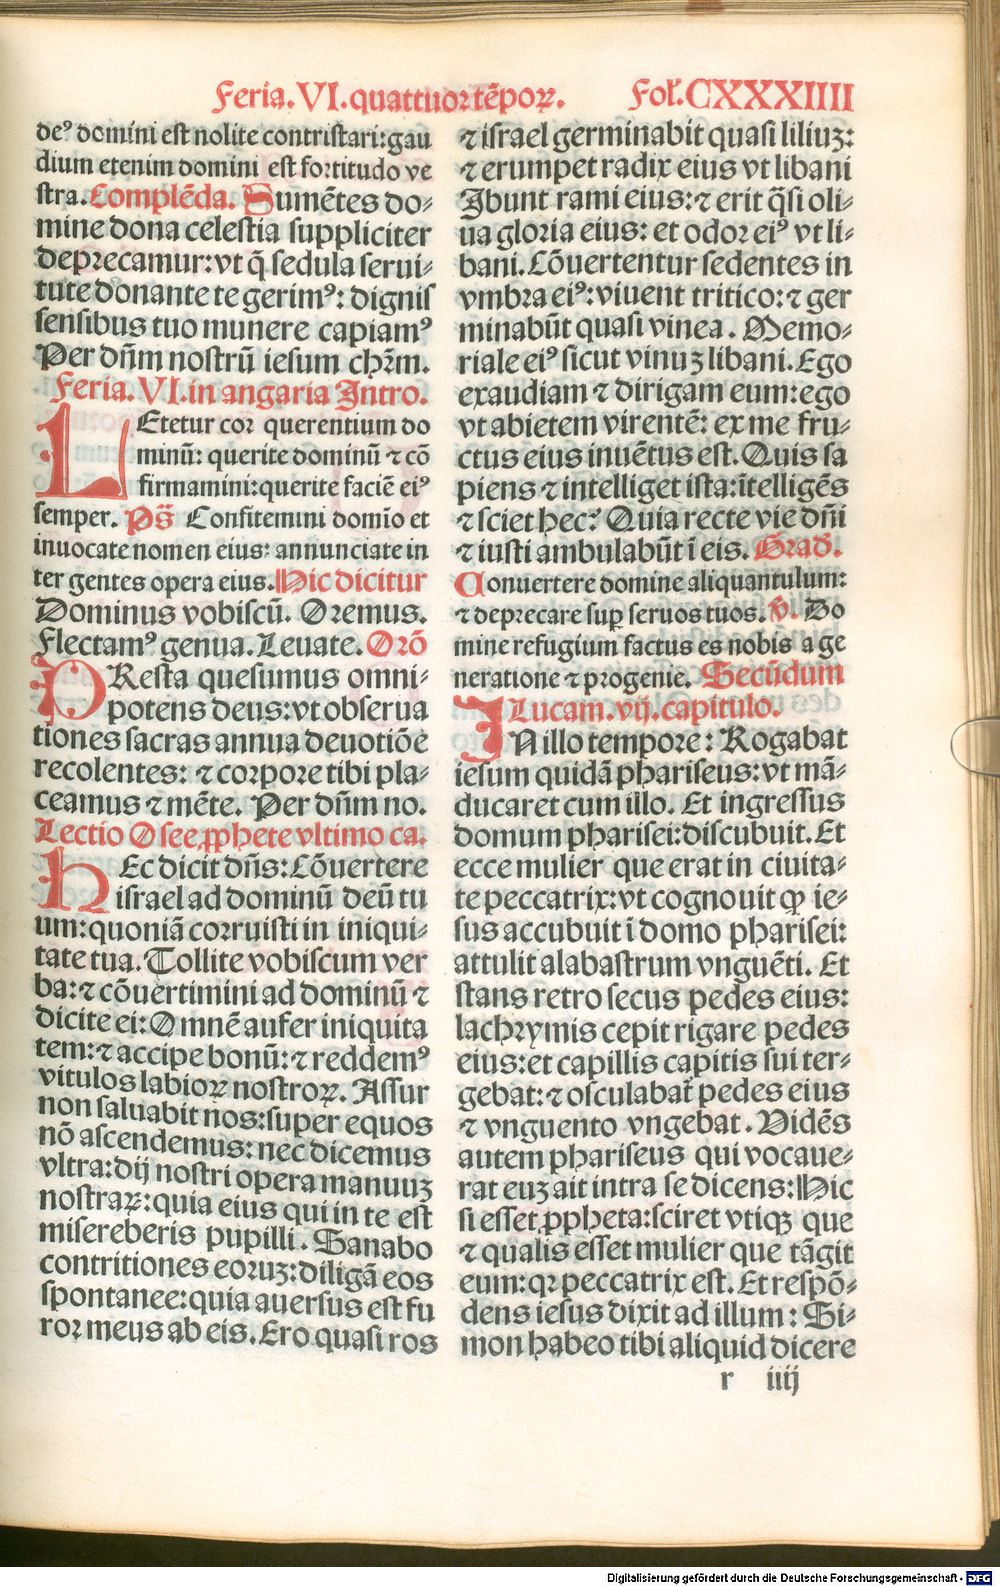 Feria. VI. quattuor tẽpoꝝ.
Fol̃. CXXXIIII
deꝰ domini est nolite contristari: gau
dium etenim domini est fortitudo ve
stra. Complẽda. Sumẽtes do⸗
mine dona celestia suppliciter
deprecamur: vt q̃ sedula serui⸗
tute donante te gerimꝰ: dignis
sensibus tuo munere capiamꝰ
Per dñm nostrũ iesum chꝛm̃.
Feria. VI. in angaria Intro.
LEtetur cor querentium do
minũ: querite dominũ ⁊ cõ
firmamini: querite faciẽ eiꝰ
semper. Ps̃ Confitemini domĩo et
inuocate nomen eius: annunciate in
ter gentes opera eius. Hic dicitur
Dominus vobiscũ. Oremus.
Flectamꝰ genua. Leuate. Orõ
PResta quesumus omni⸗
potens deus: vt obserua
tiones sacras annua deuotiõe
recolentes: ⁊ corpore tibi pla⸗
ceamus ⁊ mẽte. Per dñm no.
Lectio Osee ꝓphete vltimo ca.
HEc dicit dñs: Cõuertere
israel ad dominũ deũ tu
um: quoniã corruisti in iniqui⸗
tate tua. Tollite vobiscum ver
ba: ⁊ cõuertimini ad dominũ ⁊
dicite ei: Omnẽ aufer iniquita
tem: ⁊ accipe bonũ: ⁊ reddemꝰ
vitulos labioꝝ nostroꝝ. Assur
non saluabit nos: super equos
nõ ascendemus: nec dicemus
vltra: dij nostri opera manuuʒ
nostraꝝ: quia eius qui in te est
misereberis pupilli. Sanabo
contritiones eoruʒ: diligã eos
spontanee: quia auersus est fu
ror meus ab eis. Ero quasi ros
⁊ israel germinabit quasi liliuʒ:
⁊ erumpet radix eius vt libani
Ibunt rami eius: ⁊ erit q̃si oli⸗
ua gloria eius: et odor eiꝰ vt li⸗
bani. Cõuertentur sedentes in
vmbra eiꝰ: viuent tritico: ⁊ ger
minabũt quasi vinea. Memo⸗
riale eiꝰ sicut vinuʒ libani. Ego
exaudiam ⁊ dirigam eum: ego
vt abietem virentẽ: ex me fru⸗
ctus eius inuẽtus est. Quis sa
piens ⁊ intelliget ista: ĩtelligẽs
⁊ sciet hec? Quia recte vie dñi
⁊ iusti ambulabũt ĩ eis. Grad̃.
Conuertere domine aliquantulum:
⁊ deprecare suꝑ seruos tuos. ℣. Do
mine refugium factus es nobis a ge
neratione ⁊ progenie. Secũdum
Lucam. vij. capitulo.
IN illo tempore: Rogabat
iesum quidã phariseus: vt mã⸗
ducaret cum illo. Et ingressus
domum pharisei: discubuit. Et
ecce mulier que erat in ciuita⸗
te peccatrix: vt cognouit ꝙ ie⸗
sus accubuit ĩ domo pharisei:
attulit alabastrum vnguẽti. Et
stans retro secus pedes eius:
lachrymis cepit rigare pedes
eius: et capillis capitis sui ter⸗
gebat: ⁊ osculabat̃ pedes eius
⁊ vnguento vngebat. Vidẽs
autem phariseus qui vocaue⸗
rat euʒ ait intra se dicens: Hic
si esset ꝓpheta: sciret vtiqꝫ que
⁊ qualis esset mulier que tãgit
eum: qꝛ peccatrix est. Et respõ⸗
dens iesus dixit ad illum: Si⸗
mon habeo tibi aliquid dicere
r iiij
Digitalisierung gefördert durch die Deutsche Forschungsgemeinschaft - DFG